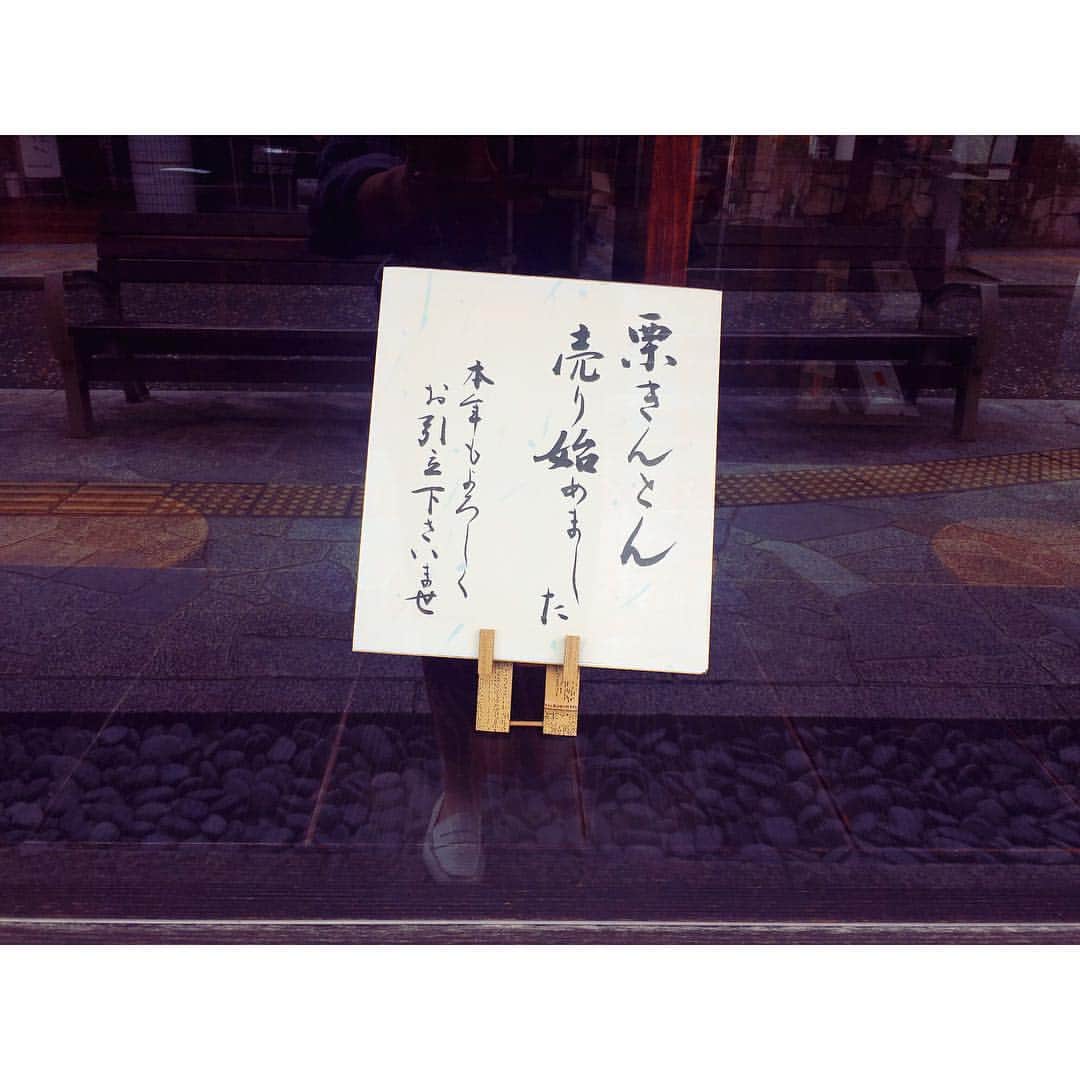 栗きんとん
売り始めました
本年もよろしく
お引立下さいませ